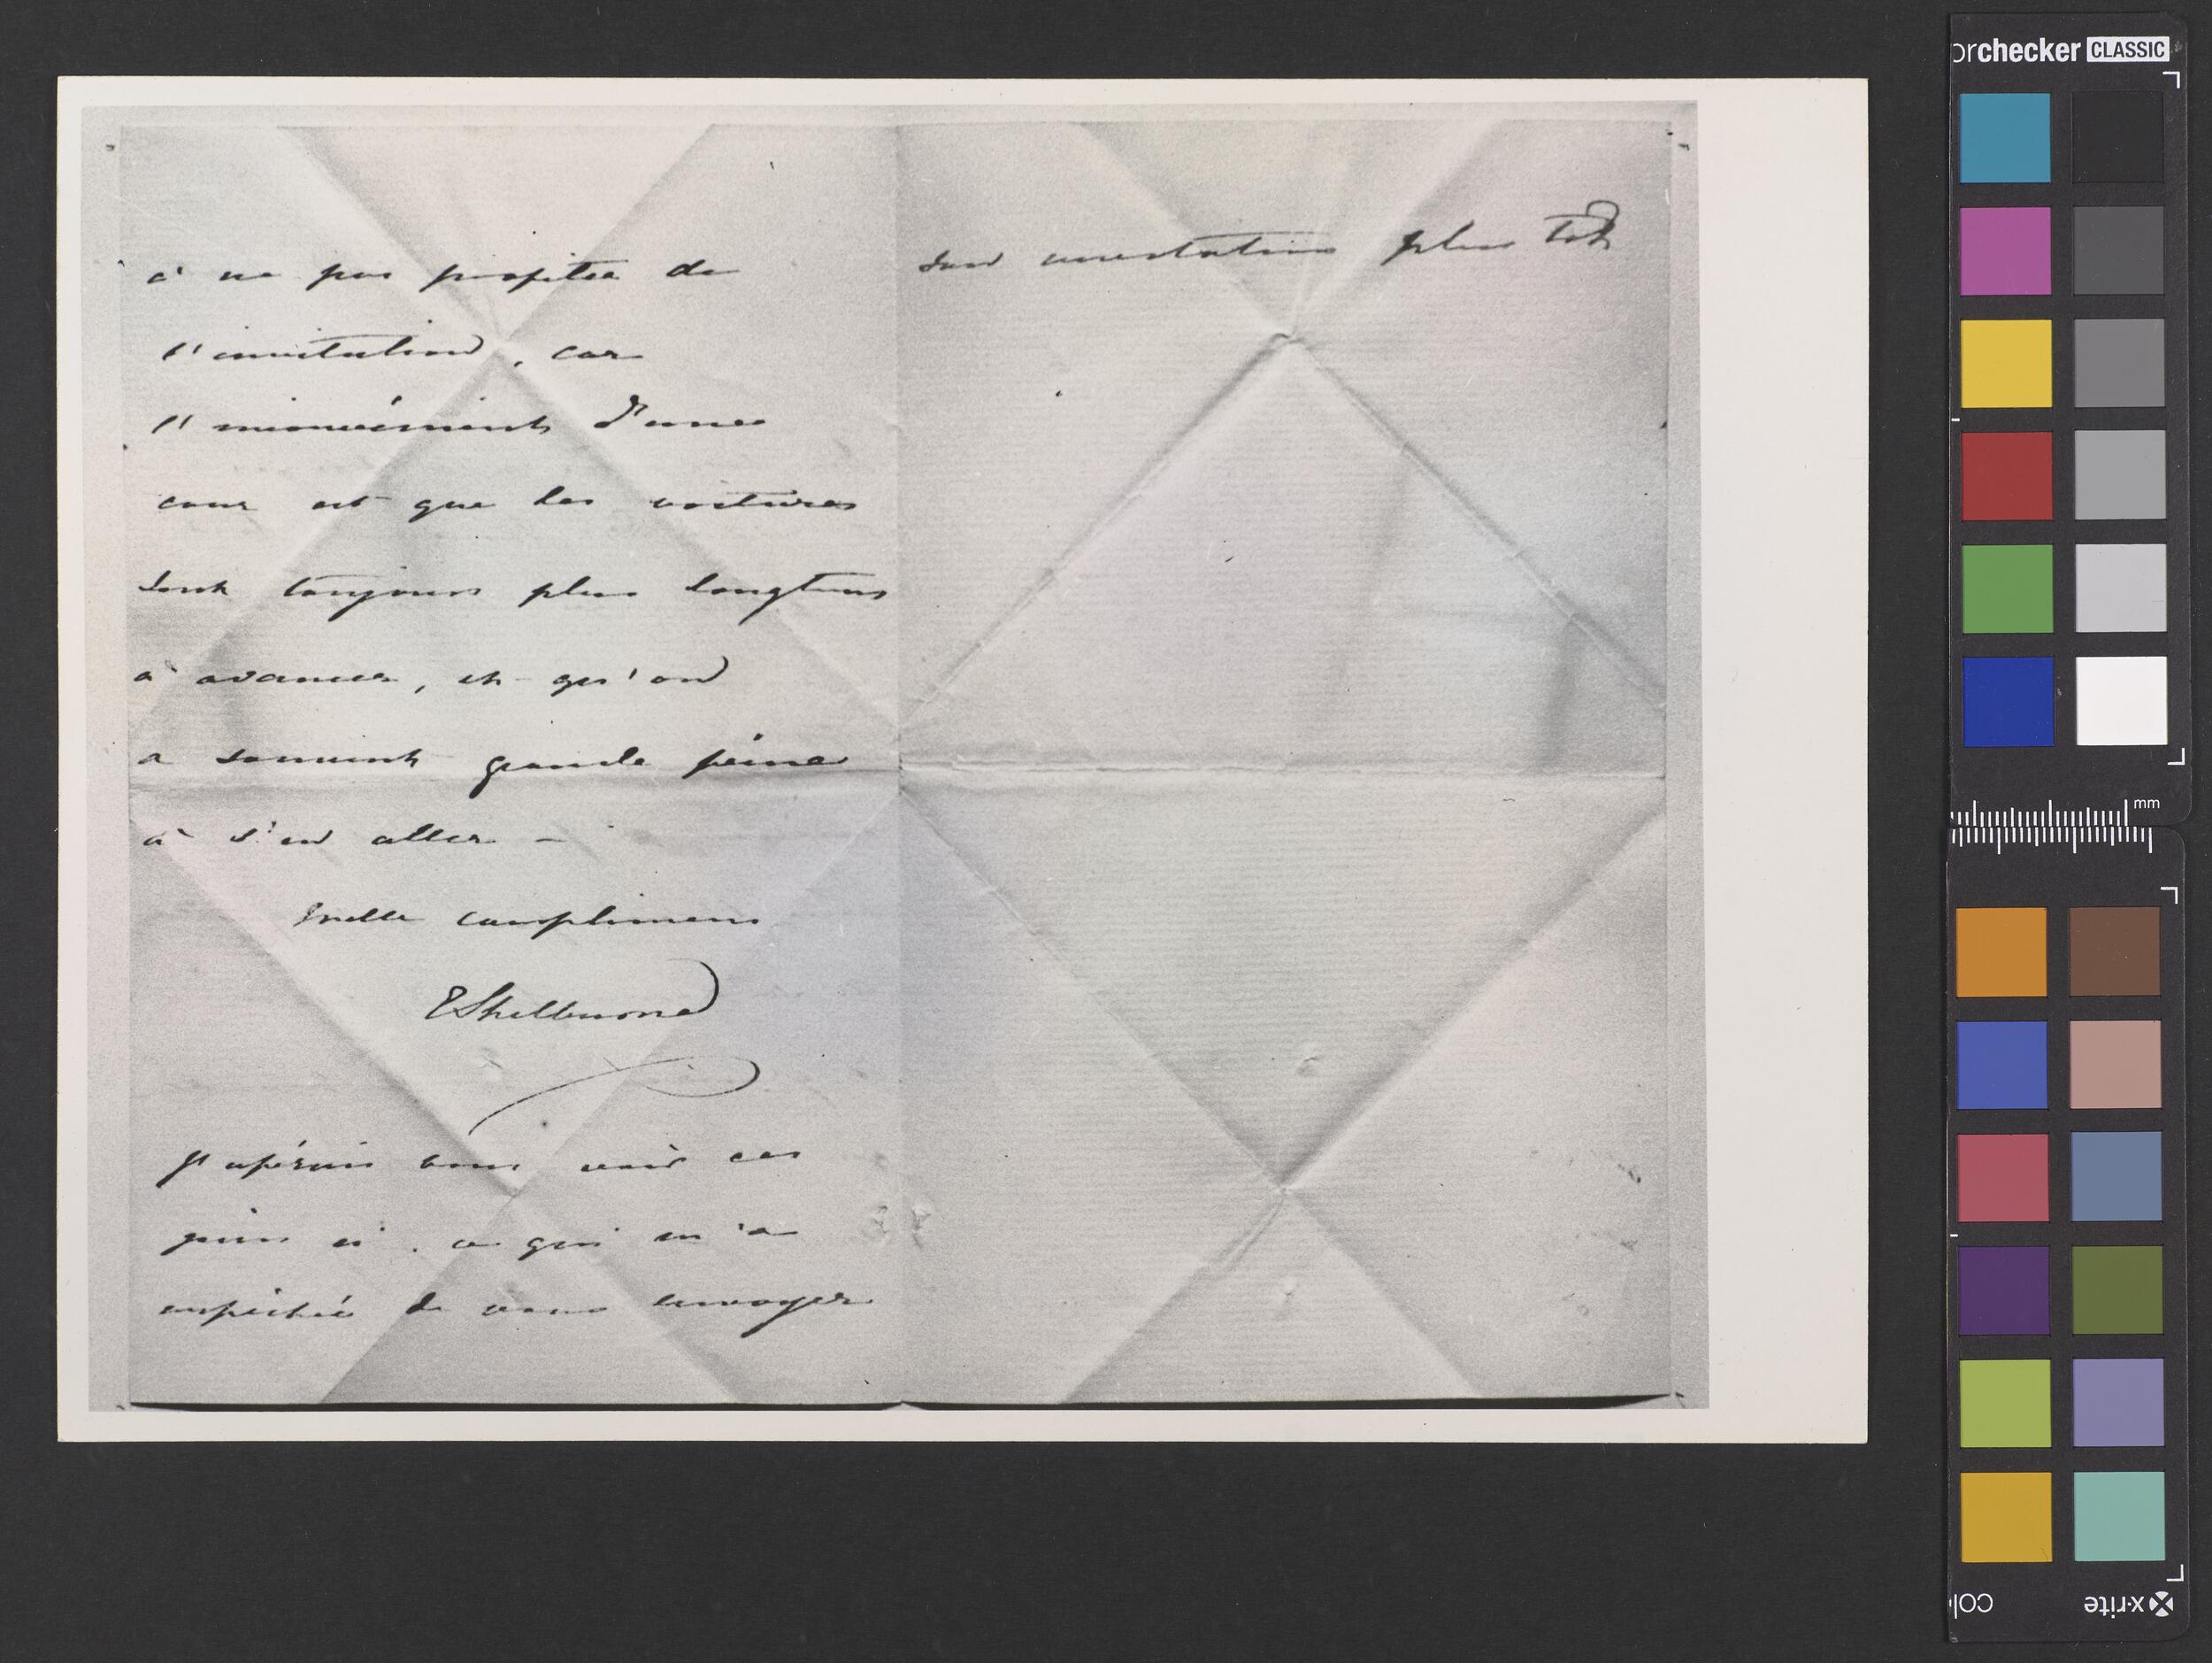 à ne pas profiter de
l'invitation, car
l'inconvénient d'une
cour est que les voitures
sont toujours plus longtems
à avancer, et qu'on
a souvent grande peine
à s'en aller –
Mille complimens
EShelburne
J'espérais vous voir ces
jours ci. ce qui m'a
empêchée de vous envoyer
son invitation plus tôt
orchecker CLASSIC
mm
x-rite
col